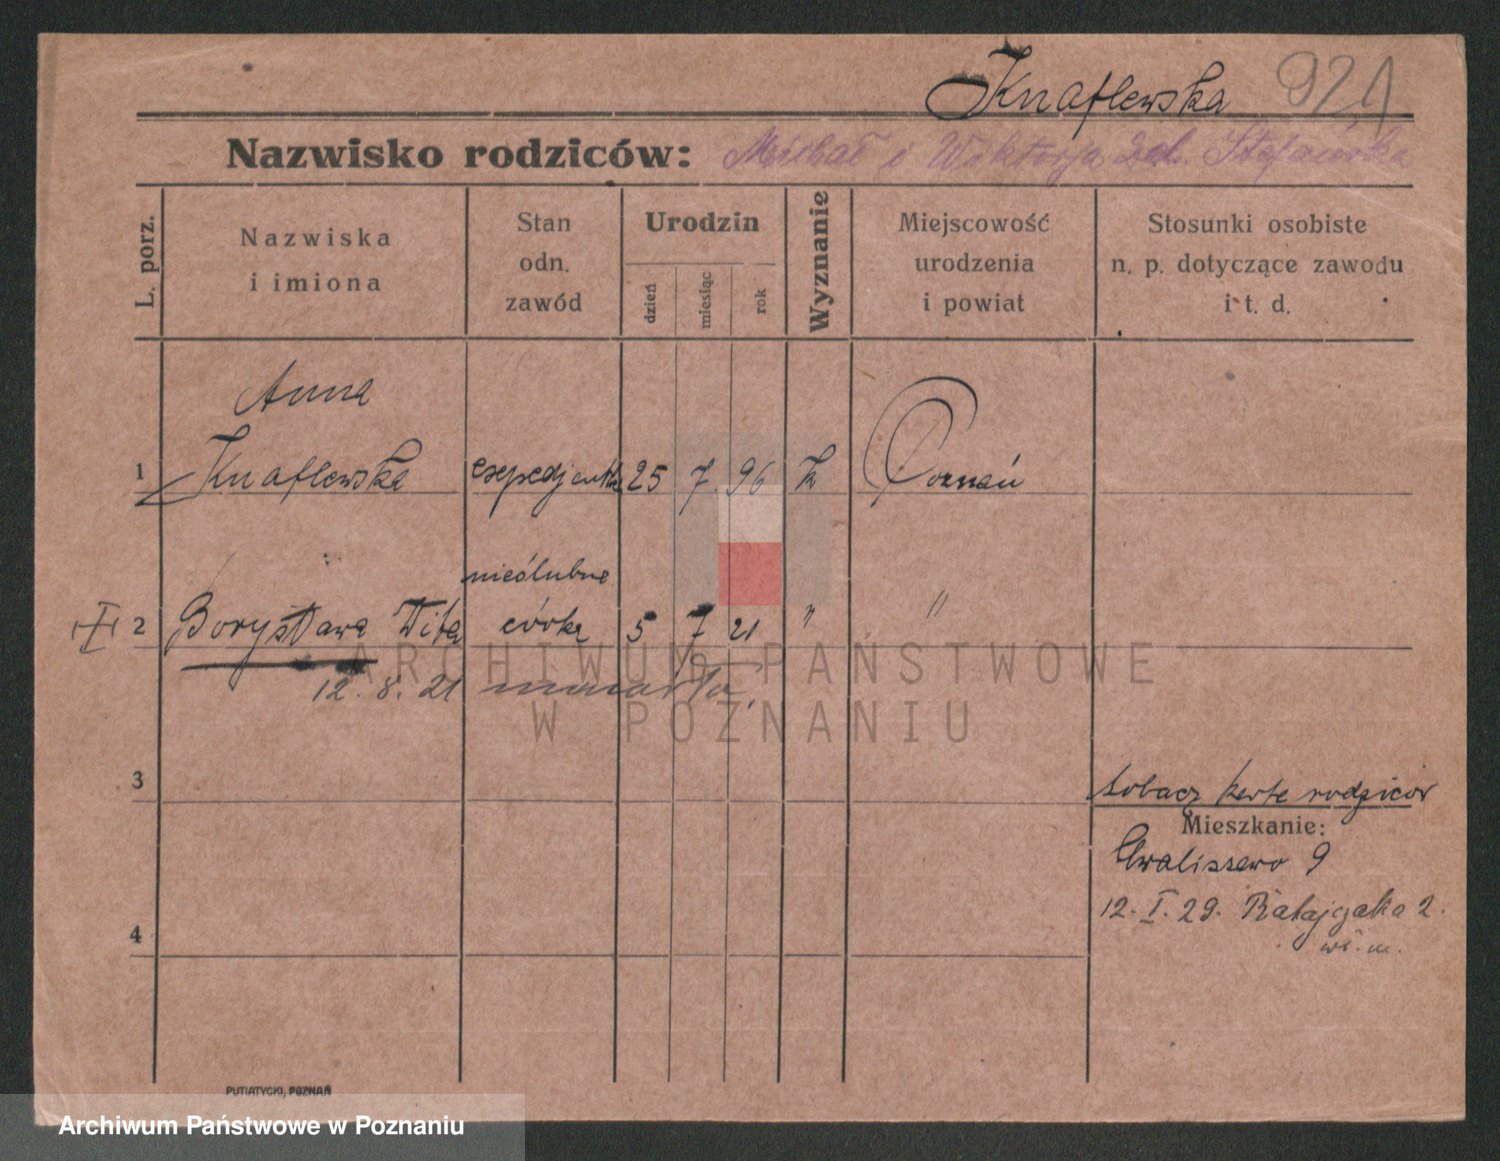 Knaflewska 921
Nazwisko rodziców: Michał i Wiktorja
L. porz.
Nazwiska
i imiona
Stan
odn.
zawód
Urodzin
dzień
miesiąc
rok
Wyznanie
Miejscowość
urodzenia
i powiat
Stosunki osobiste
n. p. dotyczące zawodu
i t. d.
Anna
1 Knaflewska 25 7 96 k Poznań
nieślubna
2 Borysława Wita córka 5 7 21 " "
12. 8. 21 umarła
3
zobacz kartę rodziców
Mieszkanie:
Chwaliszewo 9
12. I. 29. Ratajczaka 2.
4
PUTIATYCKI, POZNAŃ
ARCHIWUM PAŃSTWOWE
W POZNANIU
Archiwum Państwowe w Poznaniu